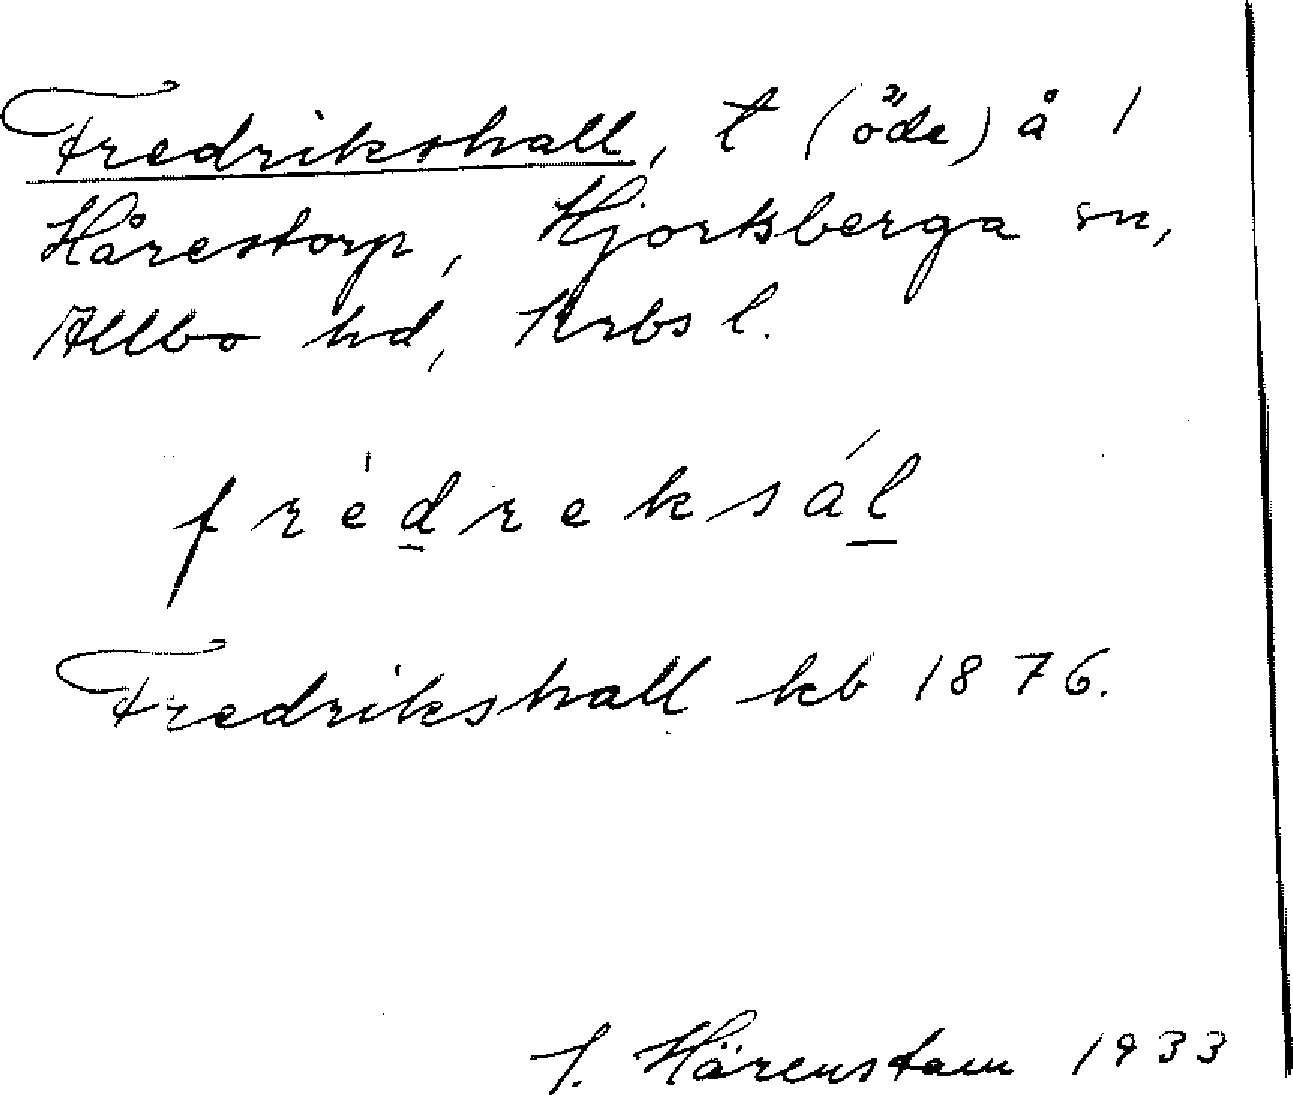 Fredrikshall, t (öde) å /
Hårestorp, Hjortsberga sn,
Allbo hd, Krbs l.
frèdreksál
Fredrikshall kb 1876.
S. Härenstam 1933